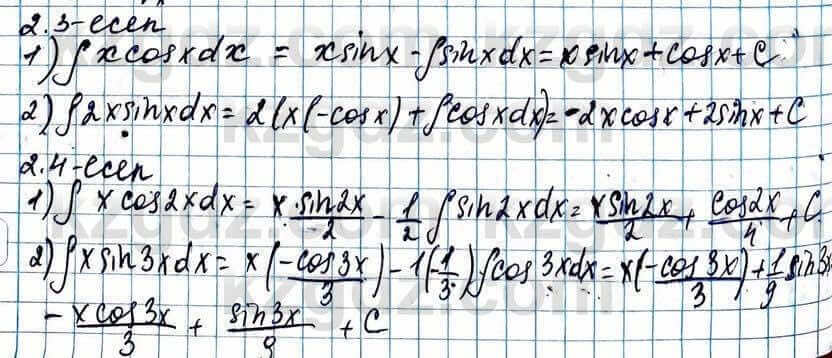 2.3-есеп
1) ∫ x cosx dx = x sinx - ∫ sinx dx = x sinx + cosx + C
2) ∫ 2x sinx dx = 2(x(-cosx) + ∫ cosx dx) = -2x cosx + 2sinx + C
2.4-есеп
1) ∫ x cos2x dx = x · sin2x/2 - 1/2 ∫ sin2x dx = x sin2x/2 + cos2x/4 + C
2) ∫ x sin3x dx = x(-cos3x/3) - 1(-1/3) ∫ cos3x dx = x(-cos3x/3) + 1/9 sin3x
- x cos3x/3 + sin3x/9 + C